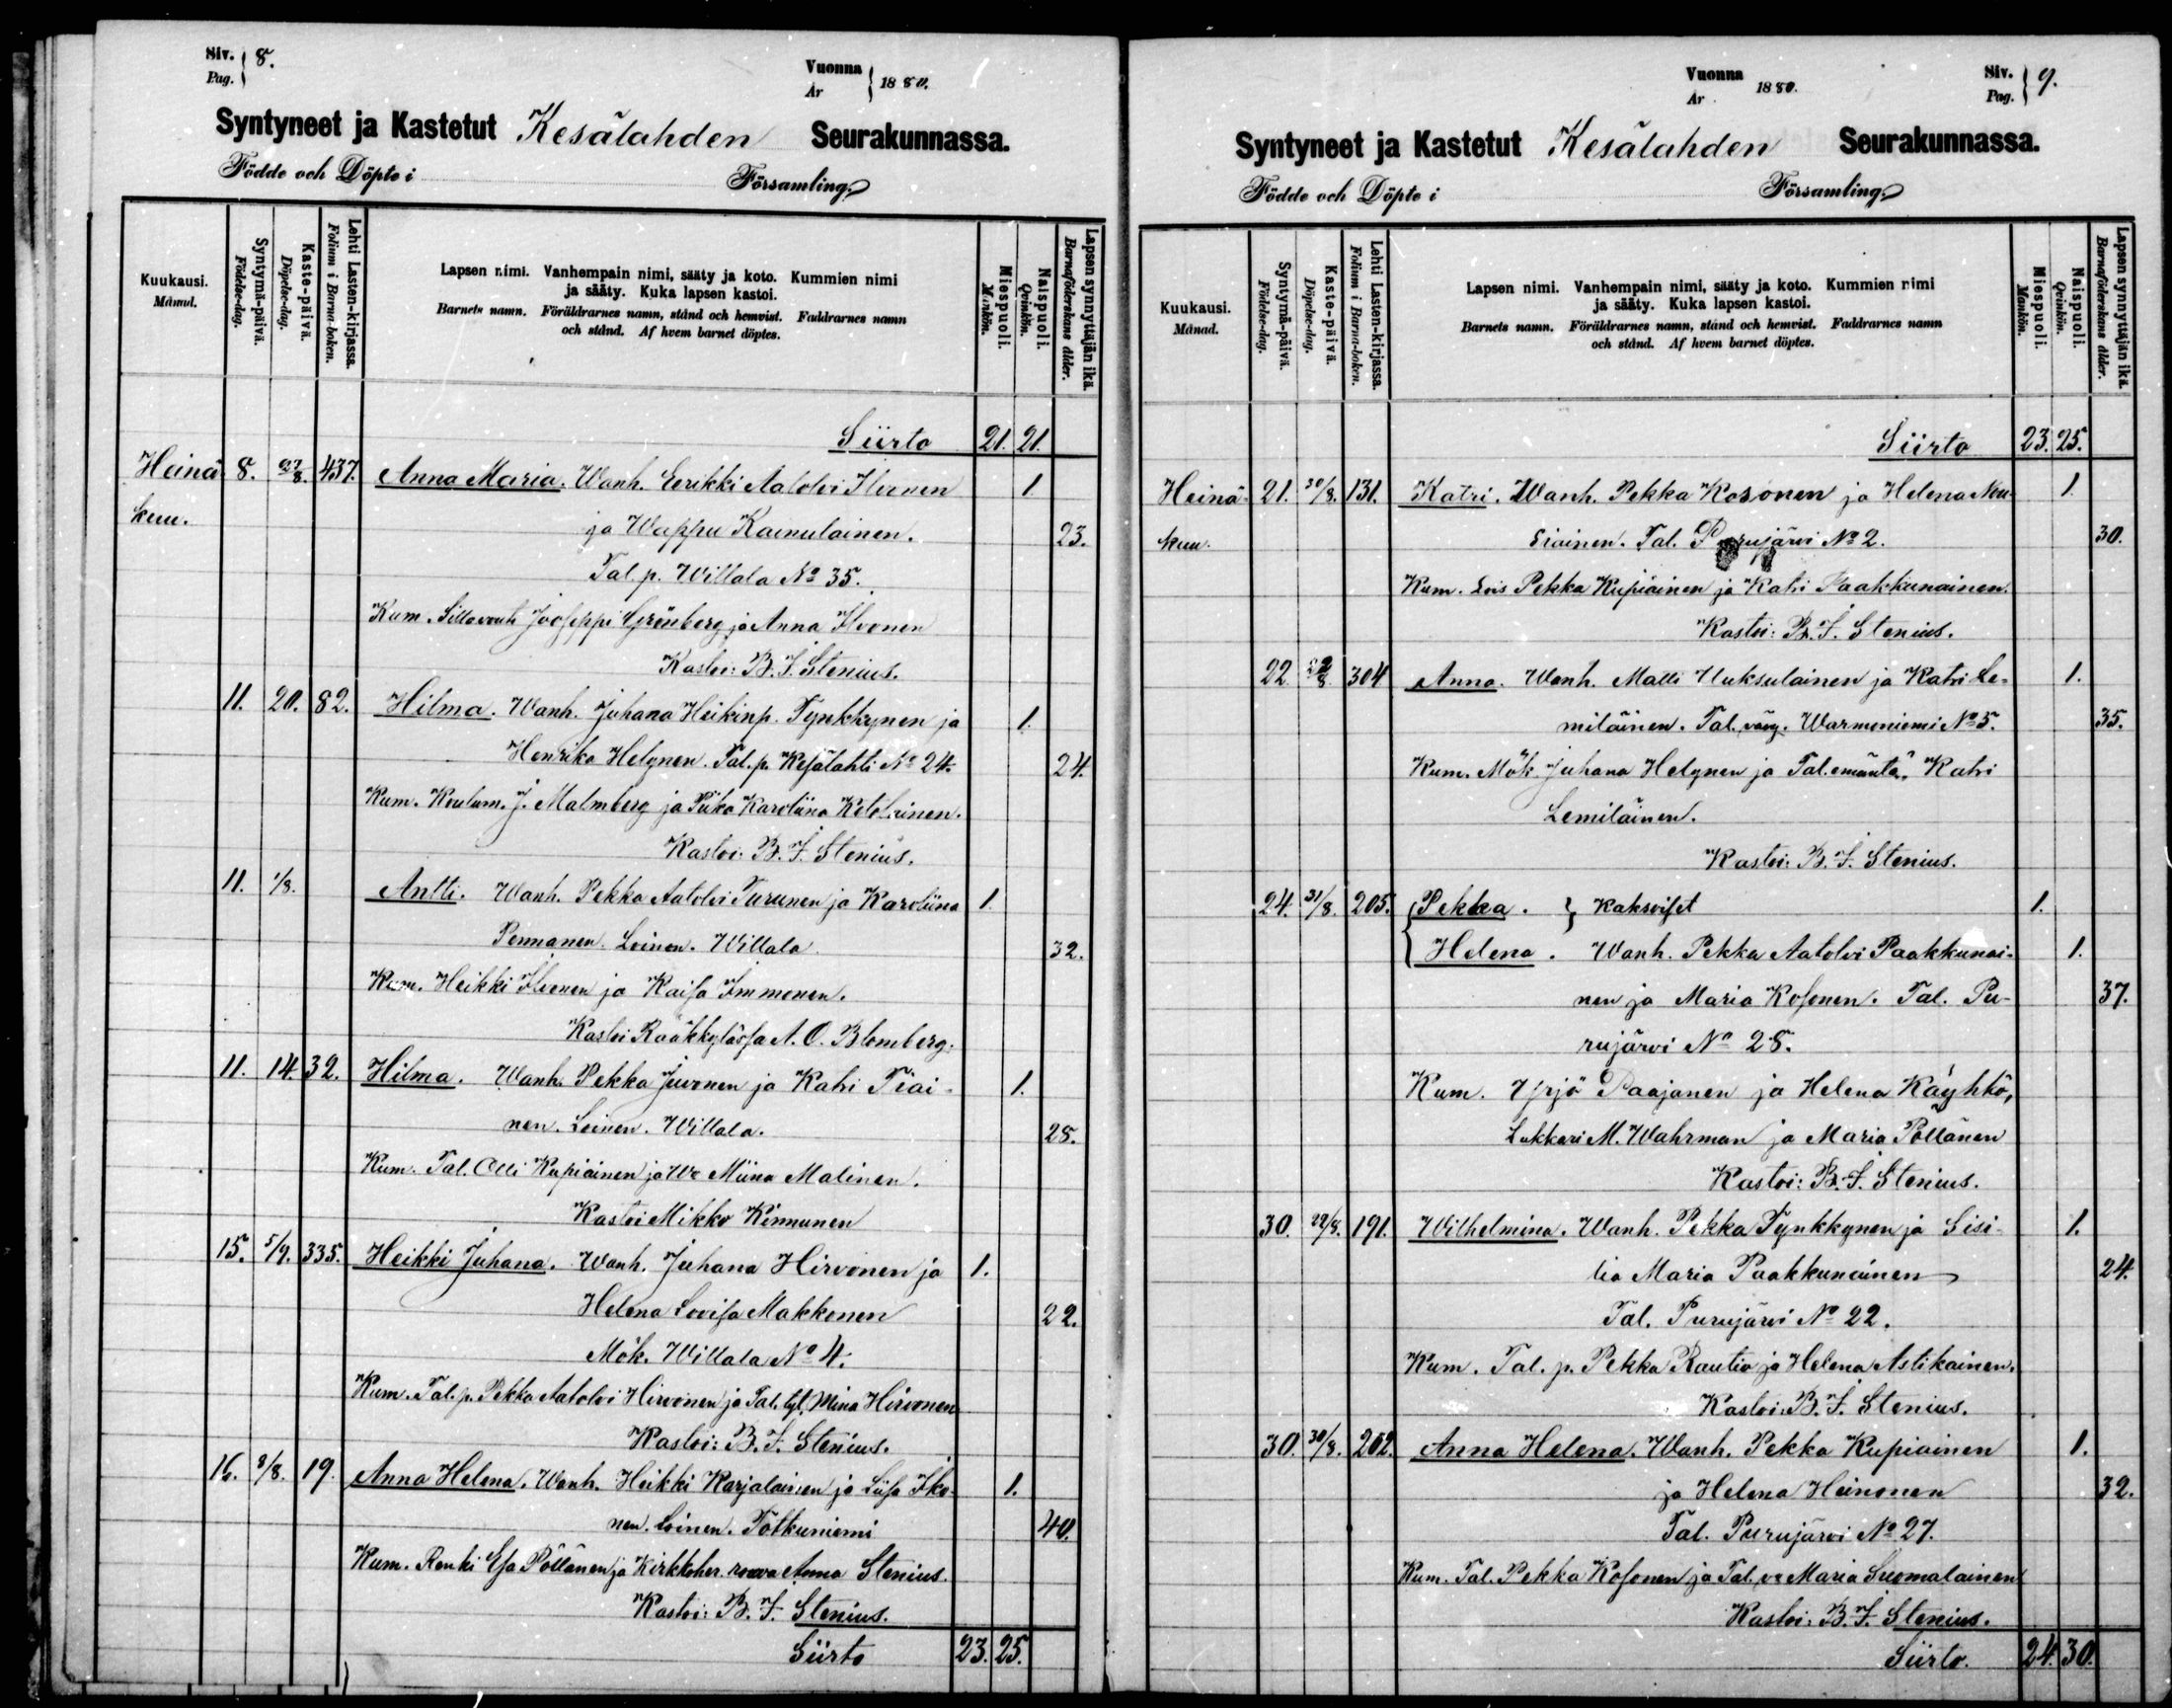 Siv. 8.
Pag.
Vuonna 1880.
År
Syntyneet ja Kastetut Kesälahden Seurakunnassa.
Födde och Döpte i Församling.
Kuukausi. Månad.
Syntymä-päivä. Födelse-dag.
Kaste-päivä. Döpelse-dag.
Lehti Lasten-kirjassa. Folium i Barna-boken.
Lapsen nimi. Vanhempain nimi, sääty ja koto. Kummien nimi
ja sääty. Kuka lapsen kastoi.
Barnets namn. Föräldrarnes namn, stånd och hemvist. Faddrarnes namn
och stånd. Af hvem barnet döptes.
Miespuoli. Mankön.
Naispuoli. Qvinkön.
Lapsen synnyttäjän ikä. Barnaföderskans ålder.
Siirto 21. 21.
Heinä 8. 22/8. 437. Anna Maria. Wanh. Eerikki Aatolvi Ilvonen 1.
kuu. ja Wappu Kainulainen. 23.
Tal. p. Willala No 35.
Kum. Siltavouti Jooseppi Grönberg ja Anna Ilvonen
Kastoi: B. J. Stenius.
11. 20. 82. Hilma. Wanh. Juhana Heikinp. Tynkkynen ja 1.
Henrika Helynen. Tal. p. Kesälahti No 24. 24.
Kum. Koulum. J. Malmberg ja Piika Karoliina Ketolainen.
Kastoi: B. J. Stenius.
11. 1/8. Antti. Wanh. Pekka Aatolvi Turunen ja Karoliina 1.
Pennanen. Loinen. Willala 32.
Kum. Heikki Ilvonen ja Kaisa Immonen.
Kastoi Rääkkylässä A. O. Blomberg.
11. 14. 32. Hilma. Wanh. Pekka Juvonen ja Katri Tiai- 1.
nen. Loinen. Willala. 28.
Kum. Tal. Olli Kupiainen ja Wo Miina Malinen.
Kastoi Mikko Kinnunen
15. 5/9. 335. Heikki Juhana. Wanh. Juhana Hirvonen ja 1.
Helena Lovisa Makkonen 22.
Mök. Willala No 4.
Kum. Tal. p. Pekka Aatolvi Hirvonen ja Tal. tyt. Mina Hirvonen
Kastoi: B. J. Stenius.
16. 8/8. 19. Anna Helena. Wanh. Heikki Karjalainen ja Liisa Iko- 1.
nen. Loinen. Totkuniemi 40.
Kum. Renki Esa Pöllänen ja Kirkkoher. rouva Anna Stenius.
Kastoi: B. J. Stenius.
Siirto 23. 25.
Vuonna 1880.
År
Siv. 9.
Pag.
Syntyneet ja Kastetut Kesälahden Seurakunnassa.
Födde och Döpte i Församling.
Kuukausi. Månad.
Syntymä-päivä. Födelse-dag.
Kaste-päivä. Döpelse-dag.
Lehti Lasten-kirjassa. Folium i Barna-boken.
Lapsen nimi. Vanhempain nimi, sääty ja koto. Kummien nimi
ja sääty. Kuka lapsen kastoi.
Barnets namn. Föräldrarnes namn, stånd och hemvist. Faddrarnes namn
och stånd. Af hvem barnet döptes.
Miespuoli. Mankön.
Naispuoli. Qvinkön.
Lapsen synnyttäjän ikä. Barnaföderskans ålder.
Siirto 23. 25.
Heinä- 21. 30/8. 131. Katri. Wanh. Pekka Kosonen ja Helena Nou- 1.
kuu. siainen. Tal. Purujärvi No 2. 30.
Kum. Lois Pekka Kupiainen ja Katri Paakkunainen.
Kastoi: B. J. Stenius.
22. 22/8. 304 Anna. Wanh. Matti Uuksulainen ja Katri Le- 1.
miläinen. Tal. väv. Warmoniemi No 5. 35.
Kum. Mök. Juhana Helynen ja Tal. emäntä Katri
Lemiläinen.
Kastoi: B. J. Stenius.
24. 31/8. 205. Pekka. } Kaksoiset 1.
Helena. Wanh. Pekka Aatolvi Paakkunai- 1.
nen ja Maria Kosonen. Tal. Pu- 37.
rujärvi No 28.
Kum. Yrjö Paajanen ja Helena Käyhkö,
Lukkari M. Wahrman ja Maria Pöllänen
Kastoi: B. J. Stenius.
30. 22/8. 191. Wilhelmina. Wanh. Pekka Tynkkynen ja Sisi- 1.
lia Maria Paakkunainen 24.
Tal. Purujärvi No 22.
Kum. Tal. p. Pekka Rautio ja Helena Astikainen.
Kastoi: B. J. Stenius.
30. 30/8. 202. Anna Helena. Wanh. Pekka Kupiainen 1.
ja Helena Heinonen 32.
Tal. Purujärvi No 27.
Kum. Tal. Pekka Kosonen ja Tal. vo Maria Suomalainen
Kastoi: B. J. Stenius.
Siirto. 24. 30.